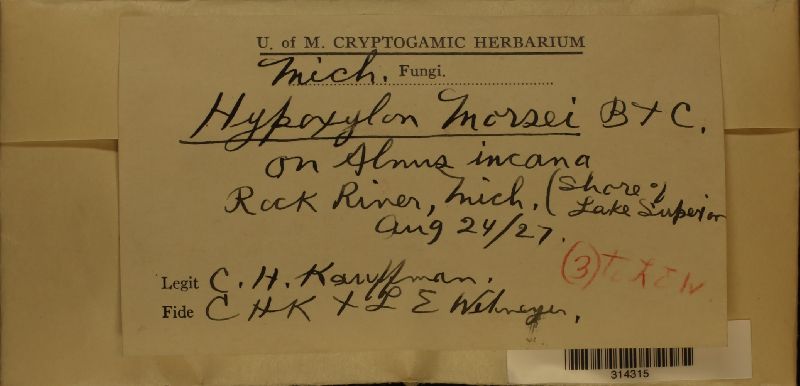 U. of M. CRYPTOGAMIC HERBARIUM
Mich. Fungi.
Hypoxylon Morsei B + C.
on Alnus incana
Rock River, Mich. (Shore of
Lake Superior
Aug 24/27.
(3) to L E W
Legit C. H. Kauffman.
Fide C H K + L E Wehmeyer,
314315